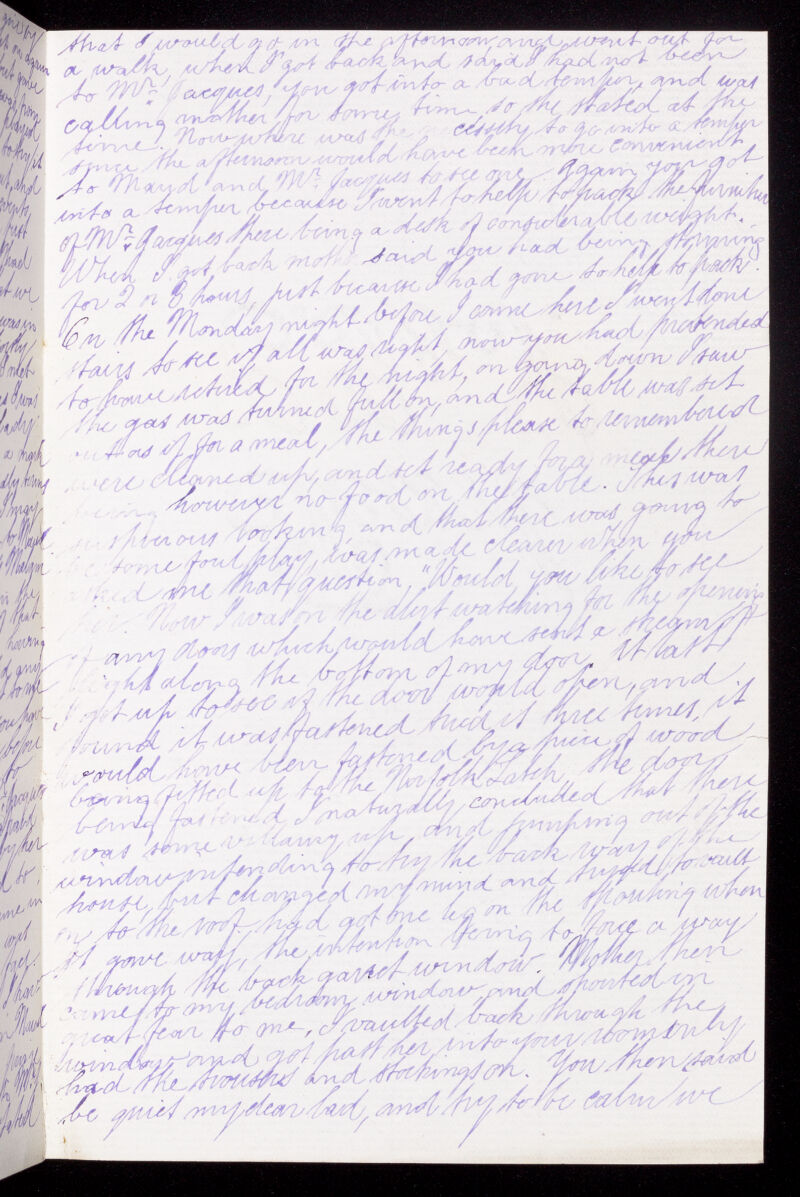 that I would go in the afternoon and went out for
a walk, when I got back and said I had not been
to Mr. Jacques, you got into a bad temper, and was
calling mother for some time so she stated at the
time. Now where was the cessity to go into a temper
since the afternoon would have been more convenient
to Maud and Mr. Jacques to see one. Again you got
into a temper because I went to help to pack the furniture
of Mr. Jacques there being a desk of considerable weight.
When I got back mother said you had being storming
for 2 or 3 hours, just because I had gone to help to pack.
On the Monday night before I come here I went done
stairs to see if all was right, now you had pretended
to have retired for the night, on going down I saw
the gas was turned full on, and the table was set
out as if for a meal, the things please to remembered
were cleaned up, and set ready for a meal there
being however no food on the table. This was
suspicious looking and that there was going to
be some foul play, was made clearer when you
asked me that question, "Would you like to see
her. Now I was on the alert watching for the opening
of any doors which would have sent a stream of
light along the bottom of my door, at last
I got up to see if the door would open, and
found it was fastened tried it three times, it
would have been fastened by a piece of wood
being fitted up to the Norfolk Latch, the door
being fastened I naturally concluded that there
was some villainy up, and jumping out of the
window intending to try the back way of the
house, but changed my mind and tryed to vault
on to the roof, had got one leg on the spouting when
it gave way, the intention being to force a way
through the back garret window. Mother then
came to my bedroom window and shouted in
great fear to me, I vaulted back through the
window and got past her, into your room only
had the trousers and stockings on. You then said
be quiet my dear lad, and try to be calm we